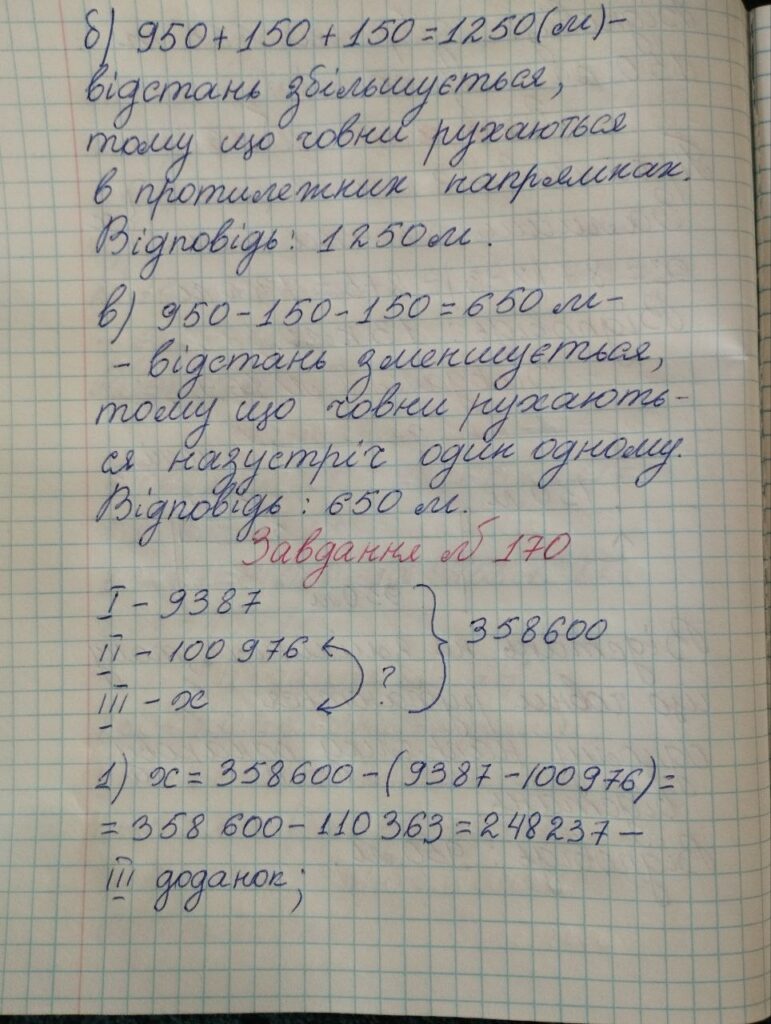 б) 950 + 150 + 150 = 1250 (м) -
відстань збільшується,
тому що човни рухаються
в протилежних напрямках.
Відповідь: 1250 м.
в) 950 - 150 - 150 = 650 м -
- відстань зменшується,
тому що човни рухають-
ся назустріч один одному.
Відповідь: 650 м.
Завдання № 170
I - 9387
II - 100 976
III - x
?
358600
1) x = 358600 - (9387 - 100976) =
= 358 600 - 110 363 = 248237 -
III доданок;